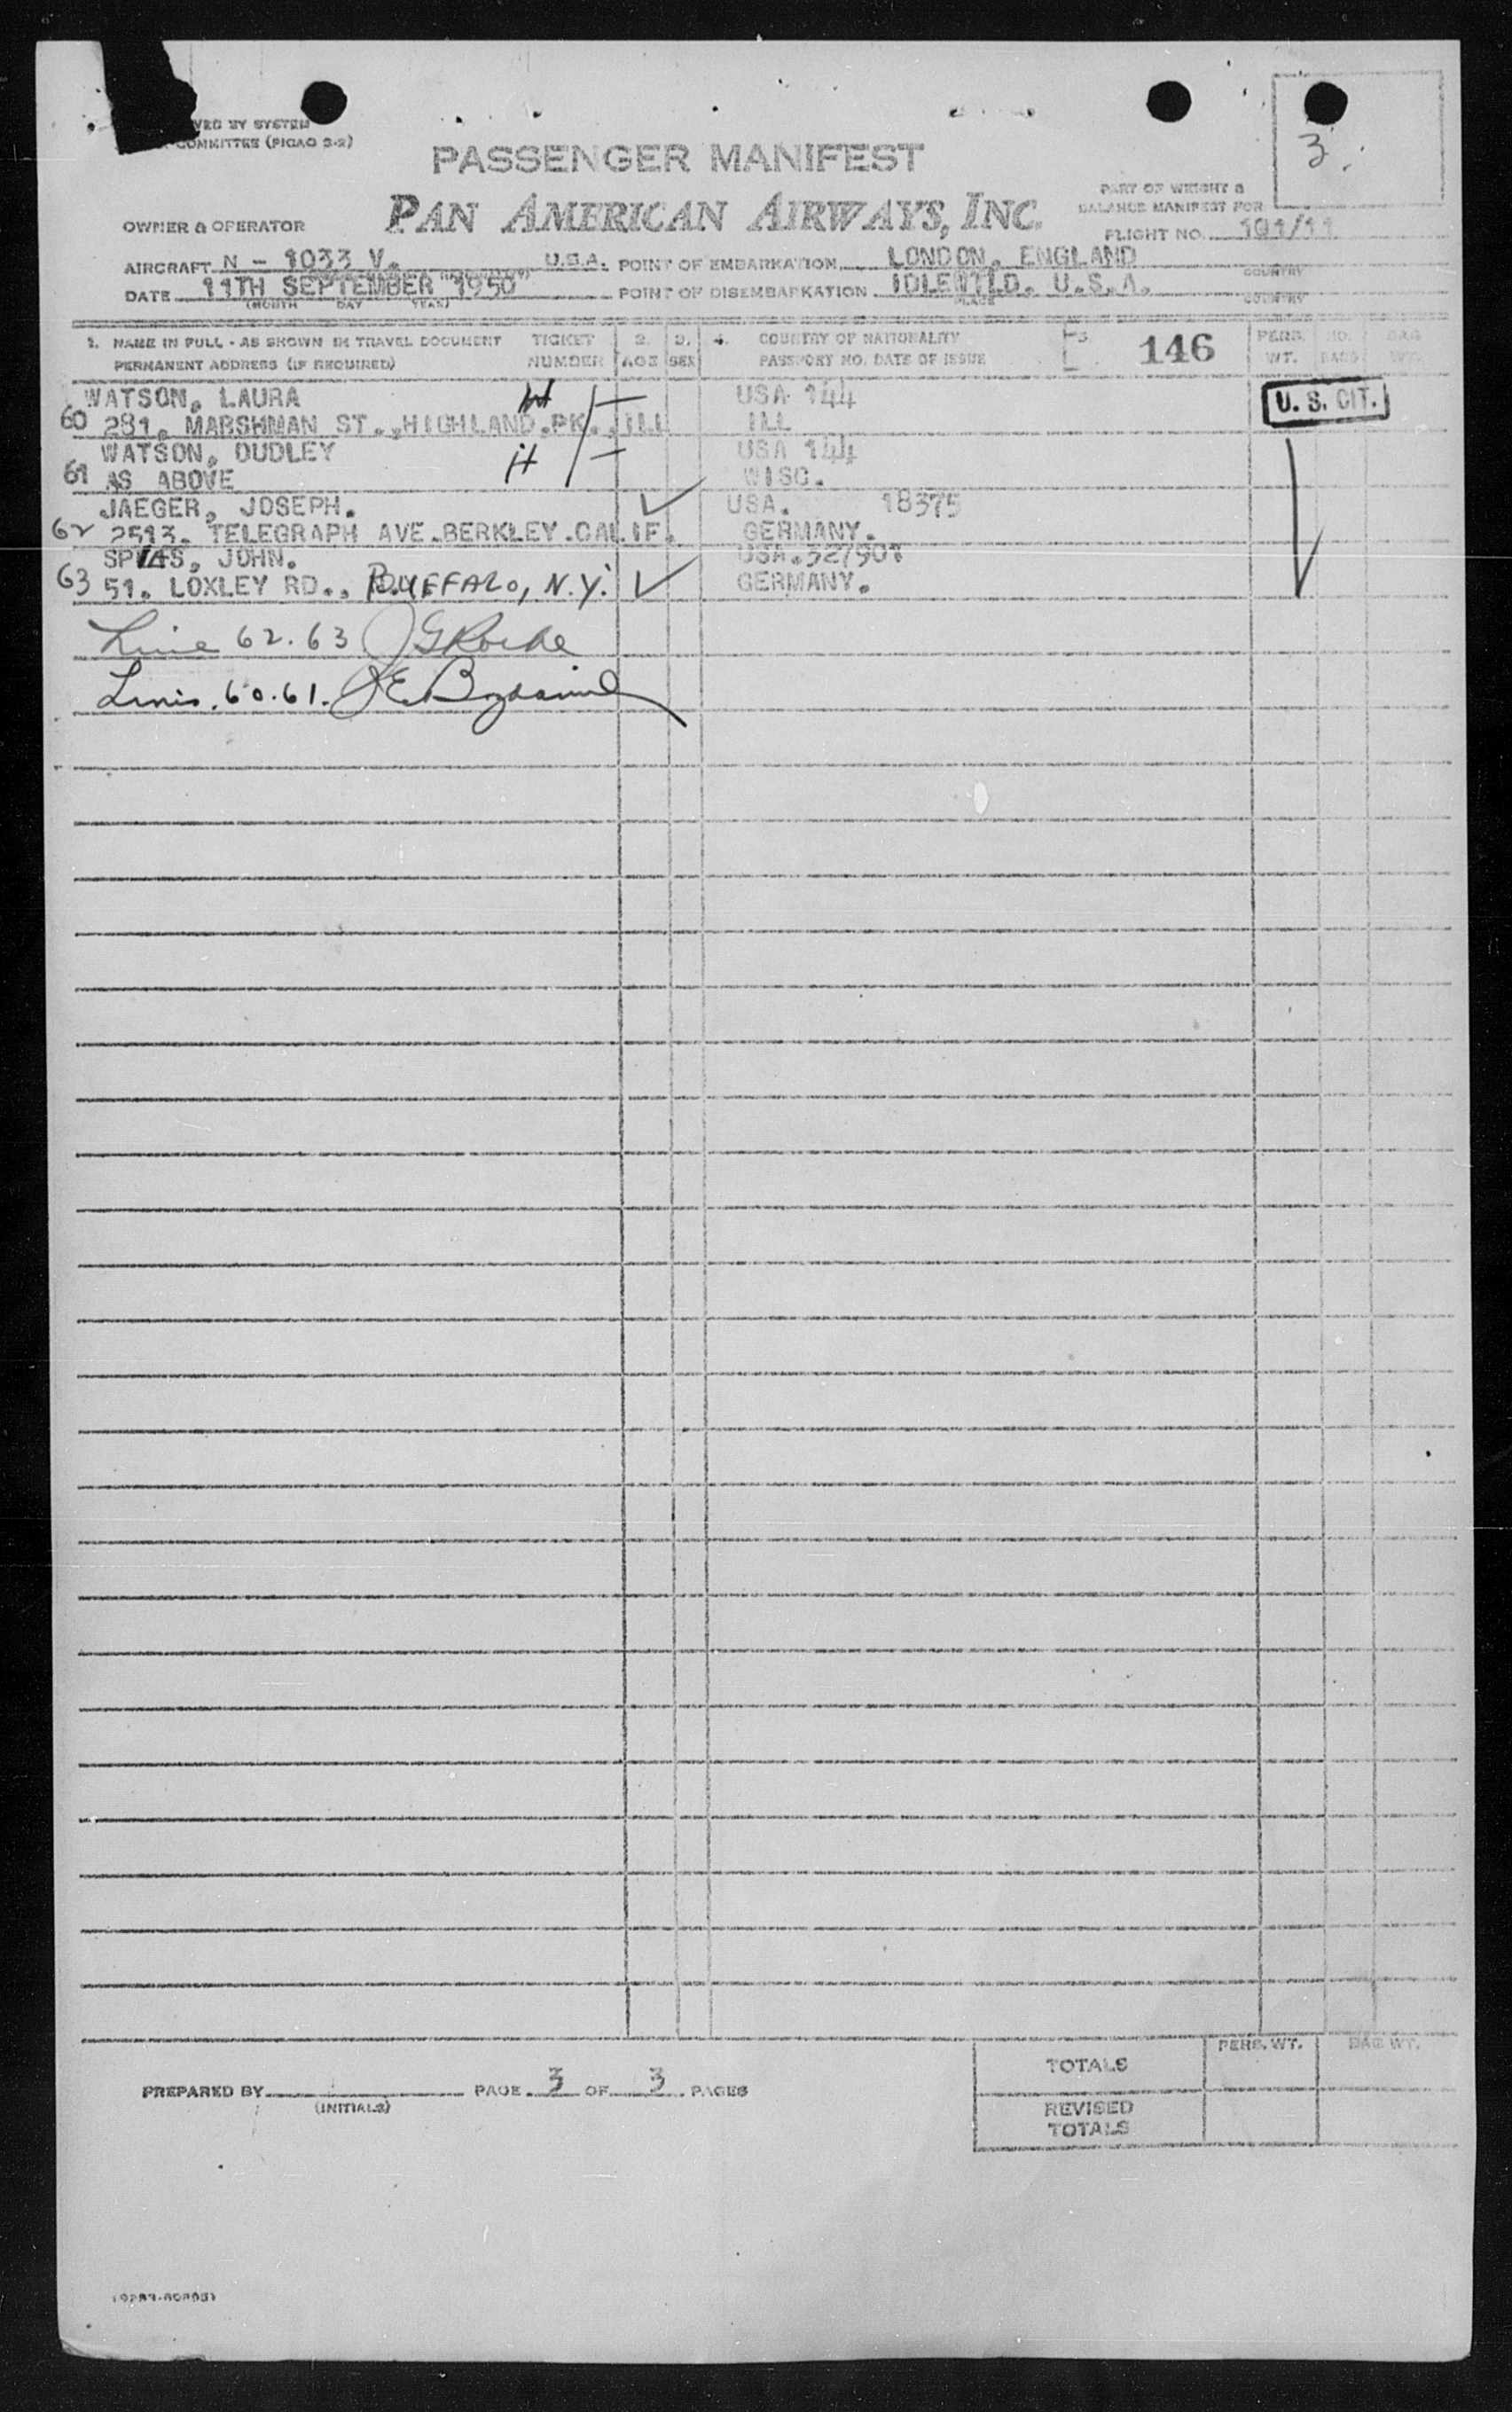 VED BY SYSTEM
COMMITTEE (PICAO 3-2)
3.
PASSENGER MANIFEST
PAN AMERICAN AIRWAYS, INC.
PART OF WEIGHT &
BALANCE MANIFEST FOR
OWNER & OPERATOR
FLIGHT NO. 101/11
AIRCRAFT N - 1033 V. U.S.A. POINT OF EMBARKATION LONDON, ENGLAND
COUNTRY
DATE 11TH SEPTEMBER 1950 POINT OF DISEMBARKATION IDLEWILD. U.S.A.
(MONTH DAY YEAR) PLACE COUNTRY
1. NAME IN FULL - AS SHOWN IN TRAVEL DOCUMENT TICKET 2. 3. 4. COUNTRY OF NATIONALITY 5. 146 PERS. NO. BAG
PERMANENT ADDRESS (IF REQUIRED) NUMBER AGE SEX PASSPORT NO. DATE OF ISSUE WT. BAGS WT.
WATSON, LAURA USA 144 U. S. CIT.
60 281, MARSHMAN ST., HIGHLAND.PK. ILL ILL
WATSON, DUDLEY USA 144
61 AS ABOVE WISC.
JAEGER, JOSEPH. USA. 18375
62 2513. TELEGRAPH AVE.BERKLEY.CALIF. GERMANY.
JOHN. USA.
63 51. LOXLEY RD., BUFFALO, N.Y. GERMANY.
Line 62.63
60.61.
TOTALS PERS. WT. BAG WT.
PREPARED BY PAGE 3 OF 3 PAGES
(INITIALS)
REVISED
TOTALS